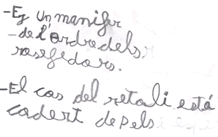 -Es un manifer
-de l'ordre dels
rosegadors.
-El cas del retali está
cadert de pels